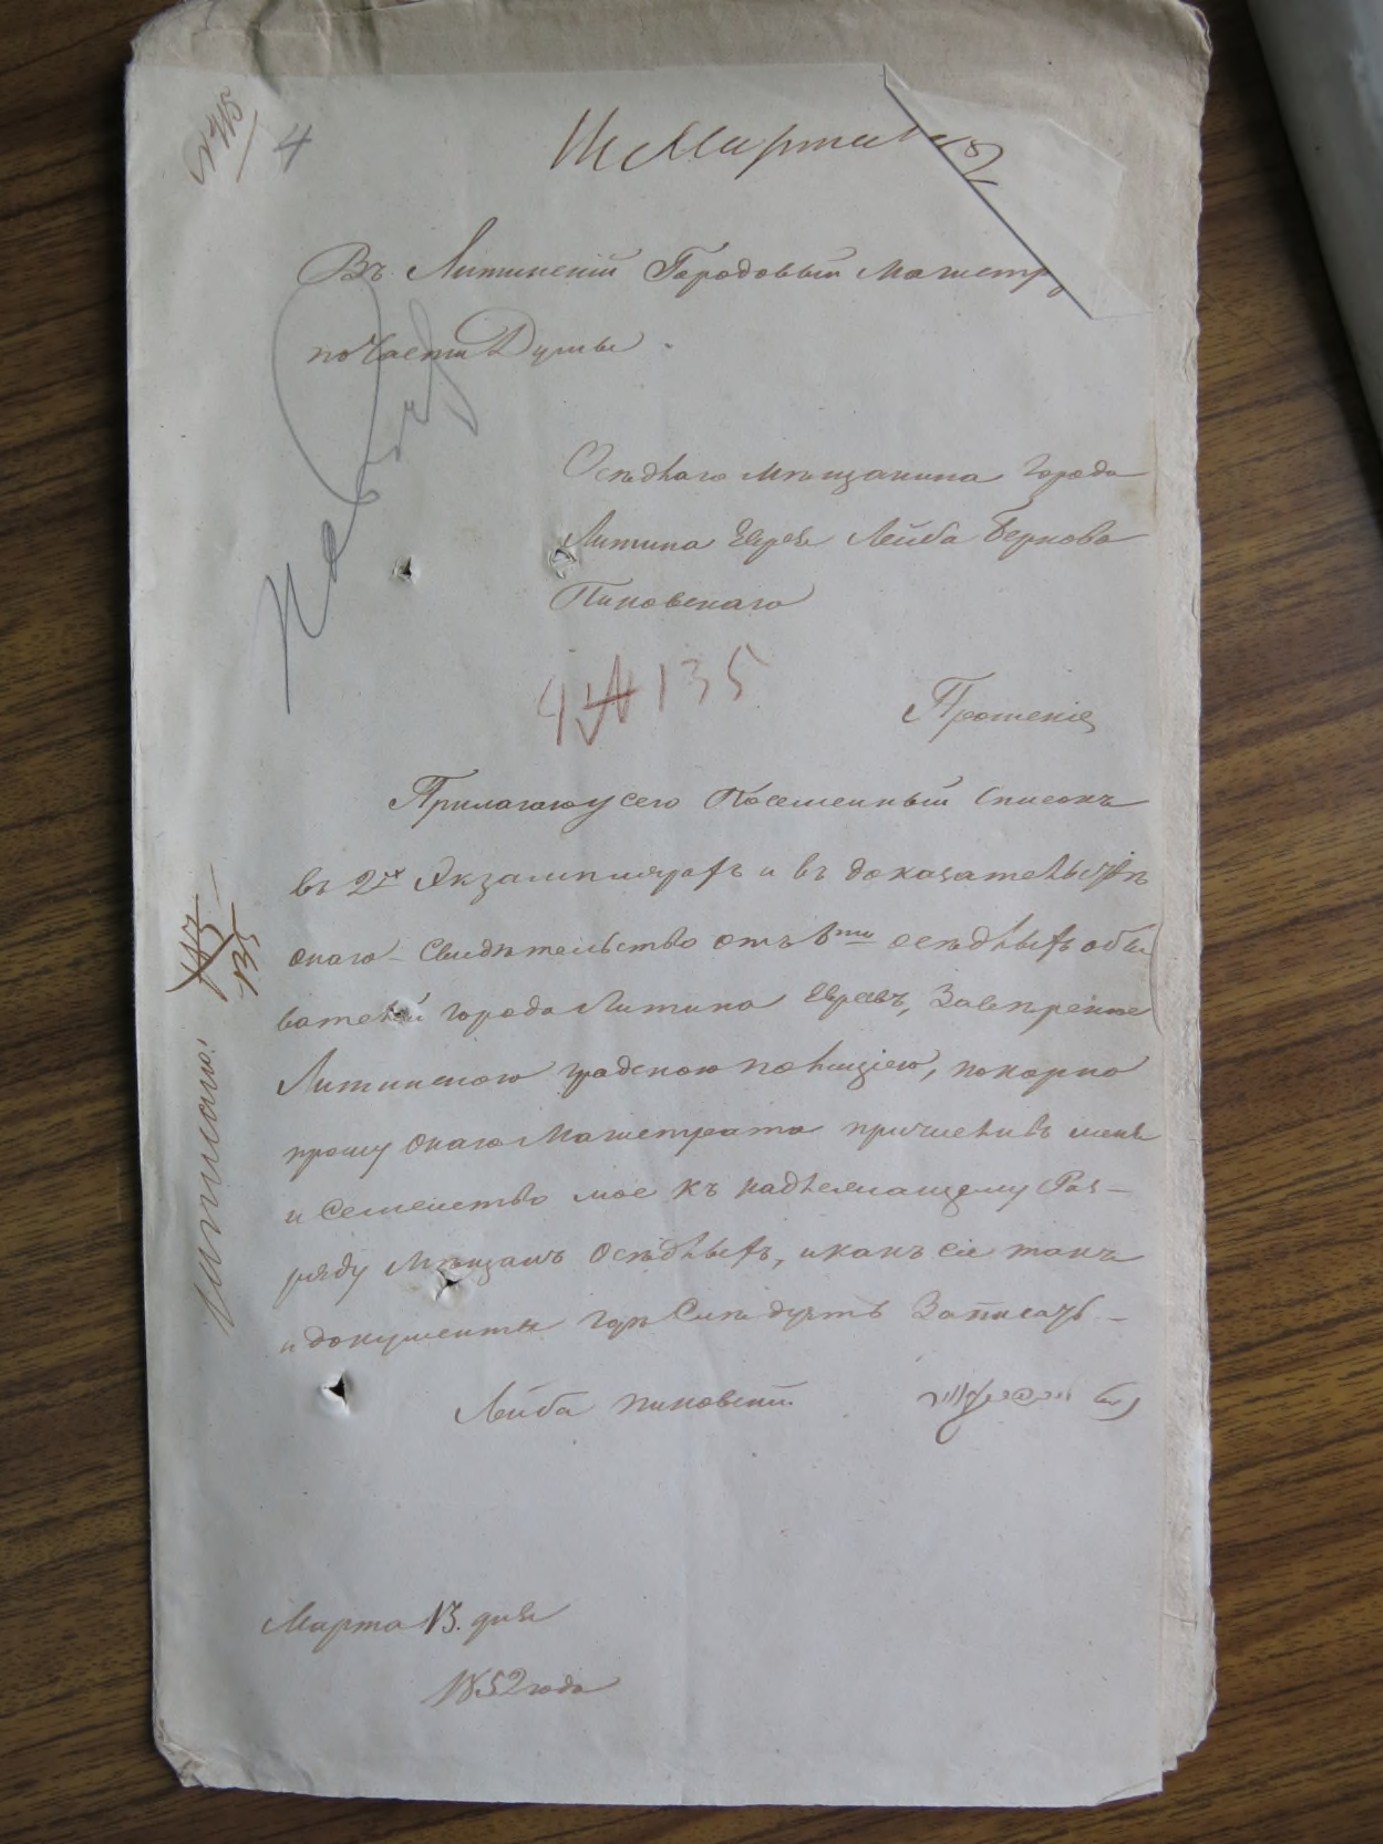 4
Марта
Въ Литинскій Городовый Магистр
по части Думы.
Осѣдлаго мѣщанина города
Литина Еврея Лейба Беркова
Пиковскаго
135
Прошеніе
Прилагая у сего Посемейный Списокъ
въ 2хъ Экземплярахъ и въ доказательствѣ
онаго Свидѣтельство отъ осѣдлыхъ обы
вателей города Литина Евреевъ, Завѣренное
Литинскою градскою полиціею, покорно
прошу Онаго Магистрата причислить меня
и Семейство мое къ надлежащему Раз-
ряду Мѣщанъ Осѣдлыхъ, и какъ сіе такъ
и документы гдѣ Слѣдуетъ Записать.
Лейба Пиковскій
Марта 13. дня
1852 года
135